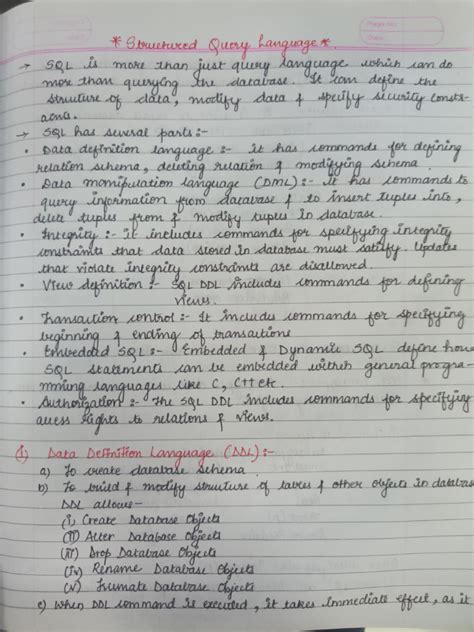 * Structured Query Language *
→ SQL is more than just query language which can do
more than querying the database. It can define the
structure of data, modify data & specify security constr-
aints.
→ SQL has several parts:-
• Data definition language :- it has commands for defining
relation schema, deleting relation & modifying schema
• Data manipulation language (DML):- it has commands to
query information from database & to insert tuples into,
delete tuples from & modify tuples in database.
• Integrity :- it includes commands for specifying integrity
constraints that data stored in database must satisfy. Updates
that violate integrity constraints are disallowed.
• View definition :- SQL DDL includes commands for defining
views.
• Transaction control :- It includes commands for specifying
beginning & ending of transactions
• Embedded SQL :- Embedded & Dynamic SQL define how
SQL statements can be embedded with general progra-
mming languages like C, C++ etc.
• Authorization :- The SQL DDL includes commands for specifying
access rights to relations & views.
(i) Data Definition Language (DDL):-
a) To create database schema
b) To build & modify structure of tables & other objects in database
DDL allows-
(i) Create Database Objects
(ii) Alter Database Objects
(iii) Drop Database Objects
(iv) Rename Database Objects
(v) Truncate Database Objects
c) When DDL command is executed, it takes immediate effect, as it